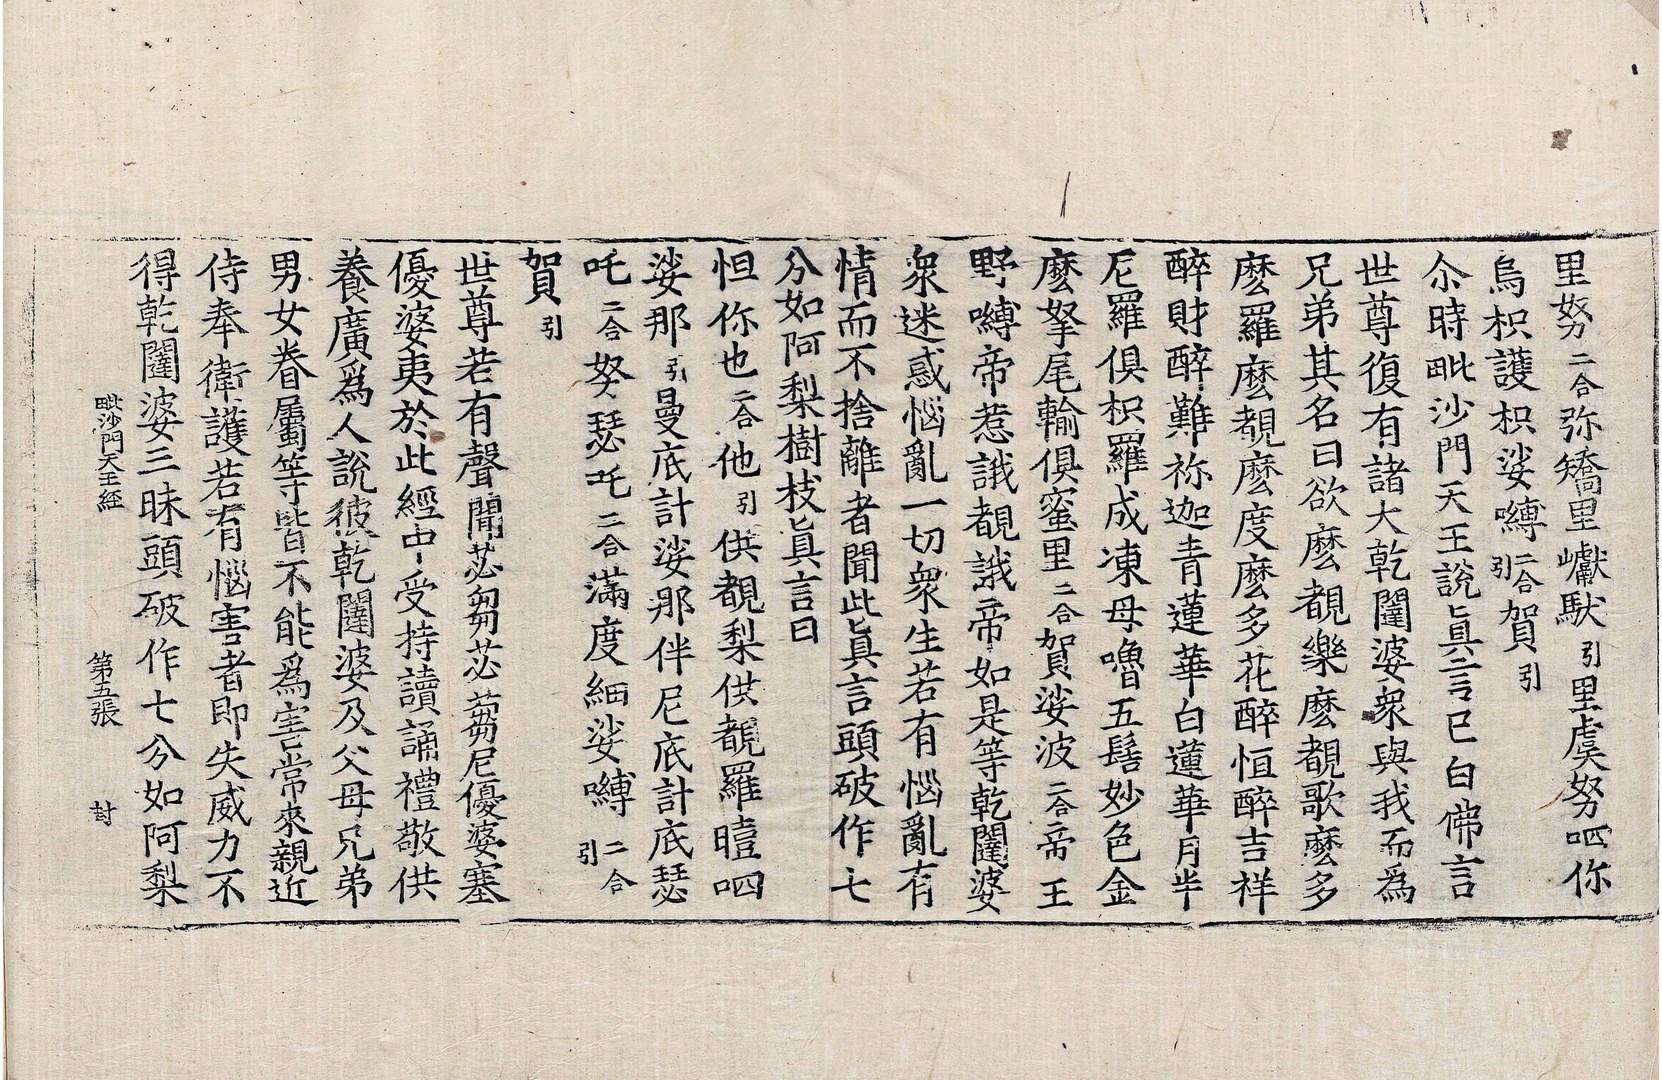 里努二合弥矯里巘馱引里虔努呬你
烏枳護枳娑嚩二合引賀引
尒時毗沙門天王說眞言已白佛言
世尊復有諸大乾闥婆衆與我而爲
兄弟其名曰欲麽覩樂麽覩歌麽多
麽羅麽覩麽度麽多花醉恒醉吉祥
醉財醉難祢迦青蓮華白蓮華月半
尼羅俱枳羅成凍母嚕五髻妙色金
麽拏尾輸俱蜜里二合賀娑波二合帝王
野嚩帝惹誐覩誐帝如是等乾闥婆
衆迷惑惱亂一切衆生若有惱亂有
情而不捨離者聞此眞言頭破作七
分如阿梨樹枝眞言曰
怛你也二合他引供覩梨供覩羅曀呬
娑那引曼底計娑那伴尼底計底瑟
吒二合努瑟吒二合滿度細娑嚩二合引
賀引
世尊若有聲聞苾芻苾芻尼優婆塞
優婆夷於此經中受持讀誦禮敬供
養廣爲人說彼乾闥婆及父母兄弟
男女眷屬等皆不能爲害常來親近
侍奉衛護若有惱害者即失威力不
得乾闥婆三昧頭破作七分如阿梨
毗沙門天王經 第五張 封